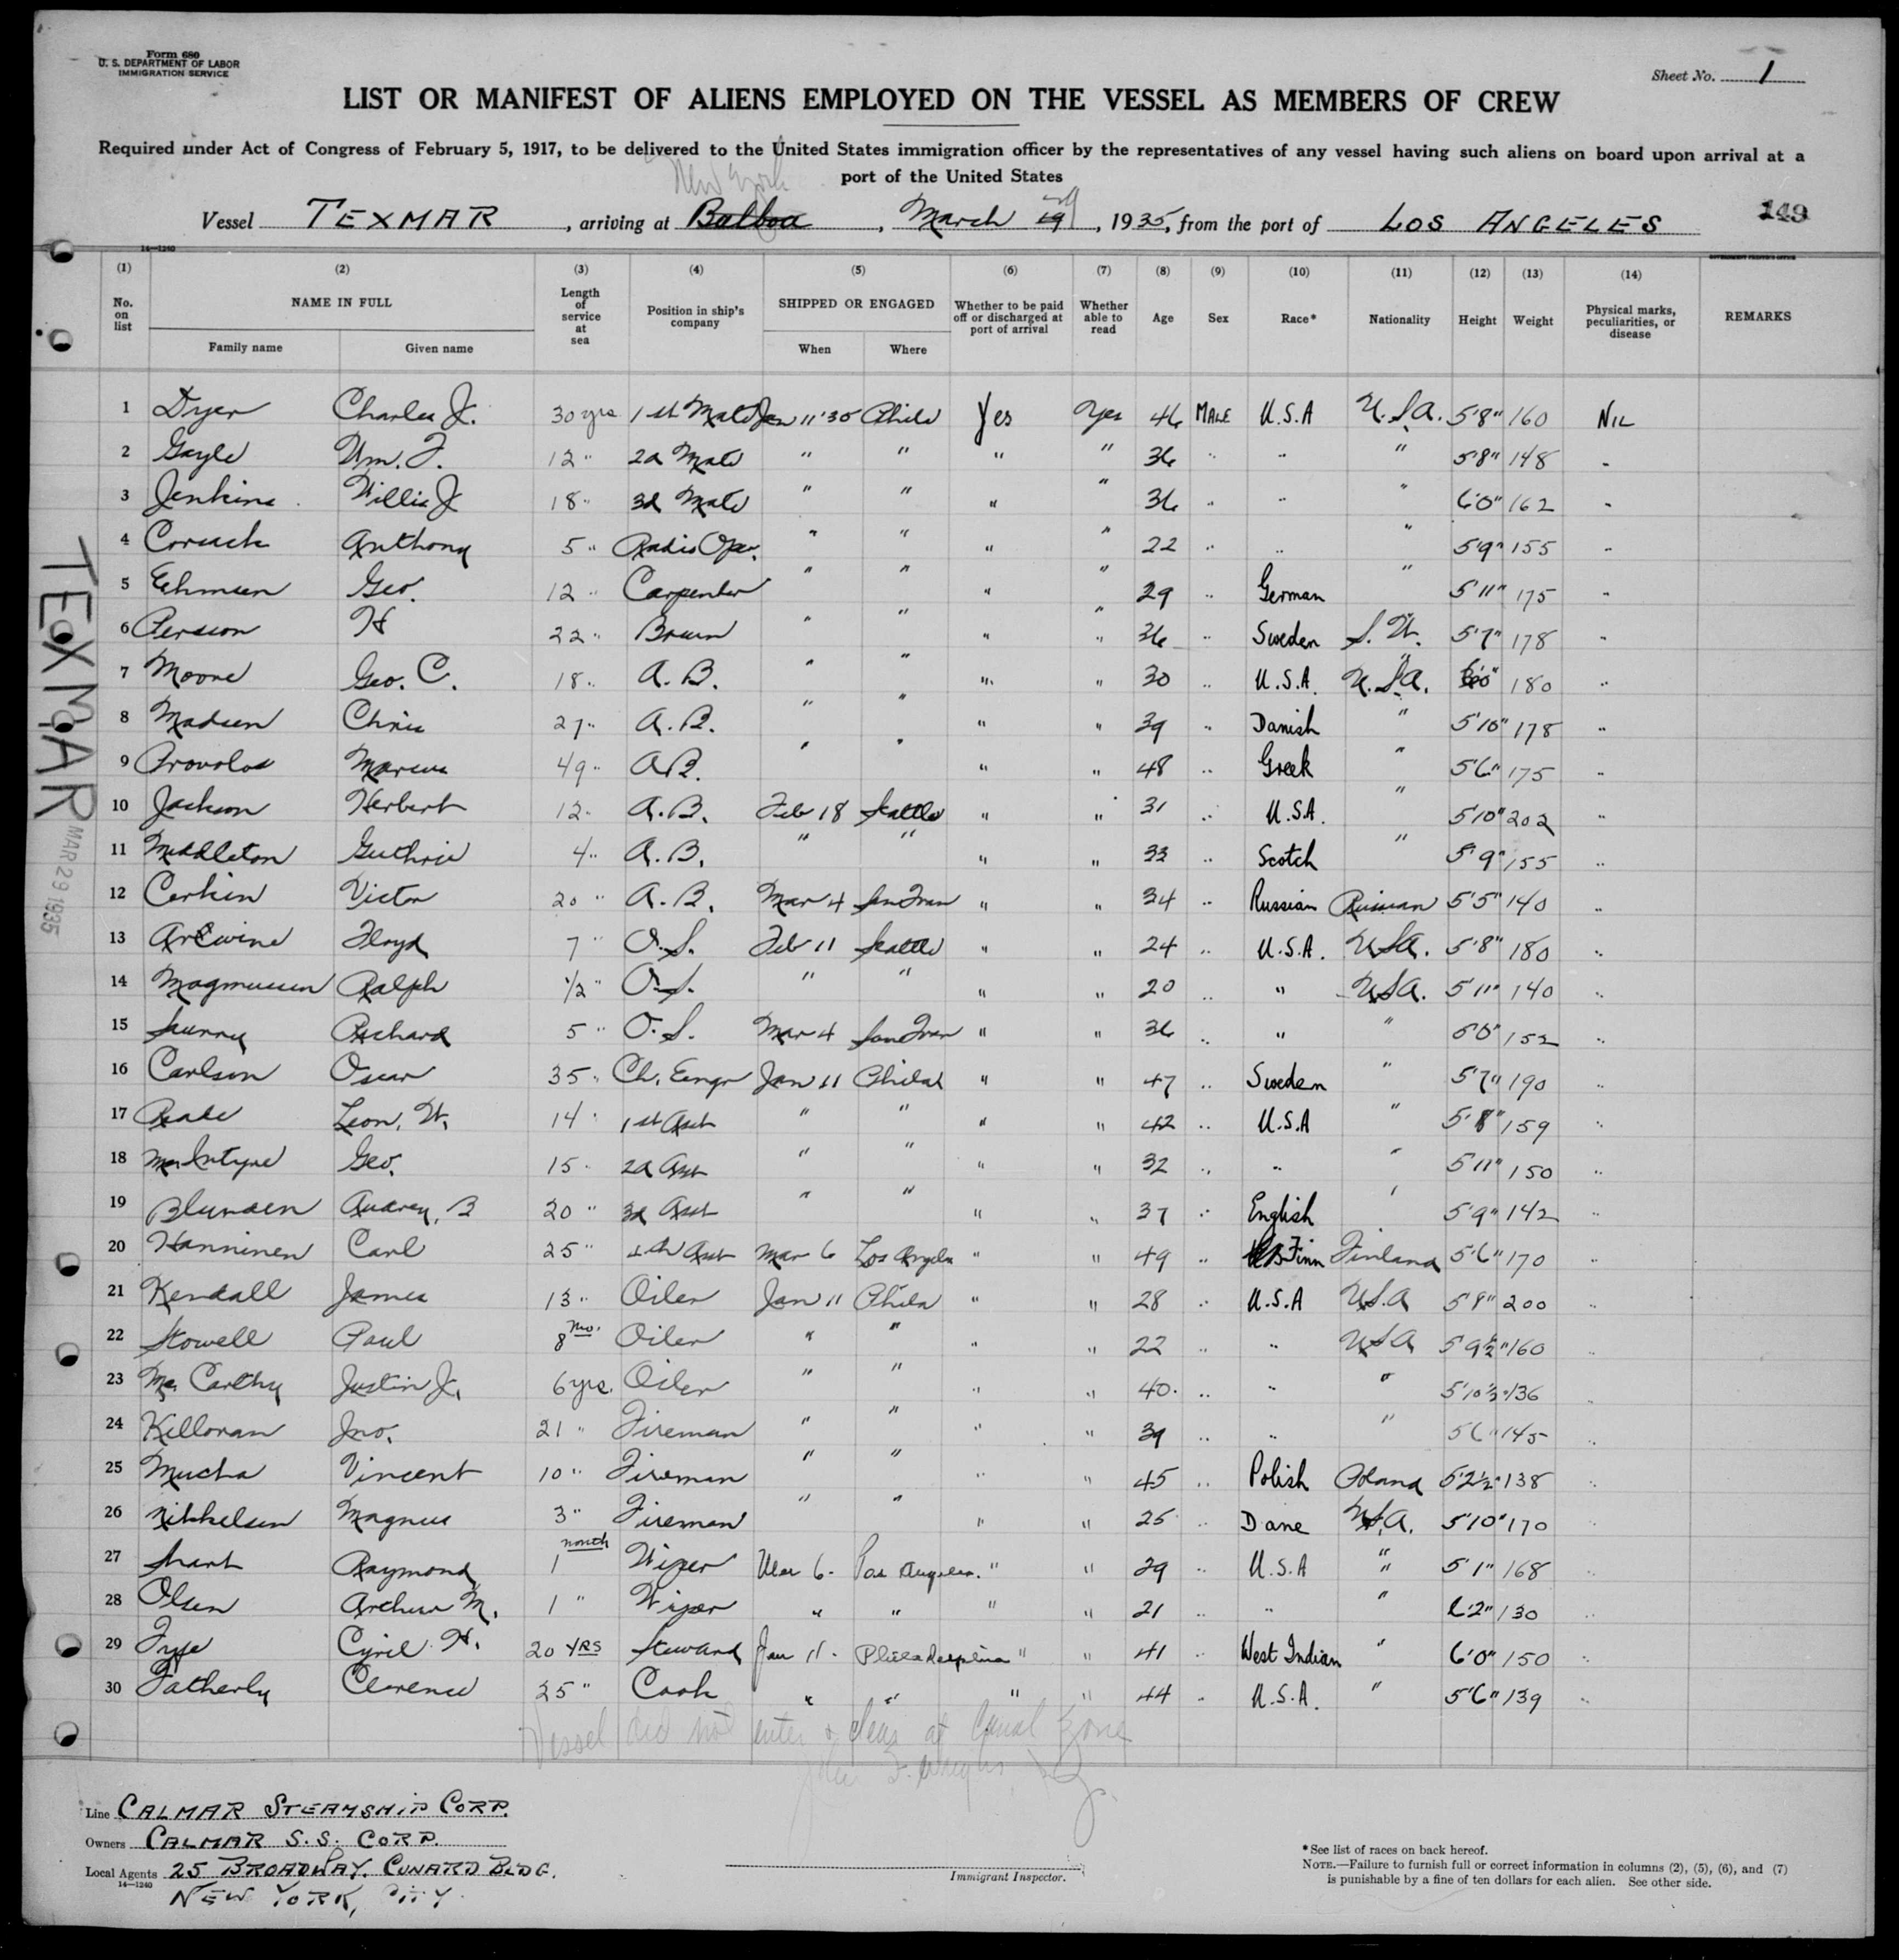 Form 680
U. S. DEPARTMENT OF LABOR
IMMIGRATION SERVICE
Sheet No. 1
LIST OR MANIFEST OF ALIENS EMPLOYED ON THE VESSEL AS MEMBERS OF CREW
Required under Act of Congress of February 5, 1917, to be delivered to the United States immigration officer by the representatives of any vessel having such aliens on board upon arrival at a
port of the United States
New York
Vessel TEXMAR, arriving at Balboa, March 19, 1935, from the port of LOS ANGELES
149
14—1240
GOVERNMENT PRINTING OFFICE
(1) (2) (3) (4) (5) (6) (7) (8) (9) (10) (11) (12) (13) (14)
No. on list NAME IN FULL Length of service at sea Position in ship's company SHIPPED OR ENGAGED Whether to be paid off or discharged at port of arrival Whether able to read Age Sex Race* Nationality Height Weight Physical marks, peculiarities, or disease REMARKS
Family name Given name When Where
1 Dyer Charles J. 30 yrs 1st Mate Jan 11 '35 Phila Yes Yes 46 MALE U.S.A U.S.A. 5'8" 160 NIL
2 Gayle Wm. F. 12 " 2d Mate " " " " 36 " " " 5'8" 148 "
3 Jenkins Willis J 18 " 3d Mate " " " " 36 " " " 6'0" 162 "
4 Anthony 5 " Radio Oper. " " " " 22 " " " 5'9" 155 "
5 Geo. 12 " Carpenter " " " " 29 " German " 5'11" 175 "
6 Person H 22 " Bosun " " " " 36 " Sweden 5'7" 178 "
7 Moore Geo. C. 18 " A.B. " " " " 30 " U.S.A. U.S.A. 6'0" 180 "
8 Madsen Chris 27 " A.B. " " " " 39 " Danish " 5'10" 178 "
9 Provolos Marcus 49 " A.B. " " " " 48 " Greek " 5'6" 175 "
10 Jackson Herbert 12 " A.B. Feb 18 Seattle " " 31 " U.S.A. " 5'10" 202 "
11 Middleton Guthrie 4 " A.B. " " " " 33 " Scotch " 5'9" 155 "
12 Cerkin Victor 20 " A.B. Mar 4 San Fran " " 34 " Russian Russian 5'5" 140 "
13 ArEwine Floyd 7 " O.S. Feb 11 Seattle " " 24 " U.S.A. U.S.A. 5'8" 180 "
14 Magnussen Ralph 1/2 " O.S. " " " " 20 " " U.S.A. 5'11" 140 "
15 Richard 5 " O.S. Mar 4 San Fran " " 36 " " " 152 "
16 Carlson Oscar 35 " Ch. Engr Jan 11 Phila " " 47 " Sweden " 5'7" 190 "
17 Leon. W. 14 " 1st Asst " " " " 42 " U.S.A " 5'8" 159 "
18 McIntyre Geo. 15 " 2d Asst " " " " 32 " " " 5'11" 150 "
19 Blunden Audrey. B 20 " 3d Asst " " " " 37 " English " 5'9" 142 "
20 Hanninen Carl 25 " 4th Asst Mar 6 Los Angeles " " 49 " Finn Finland 5'6" 170 "
21 Kendall James 13 " Oiler Jan 11 Phila " " 28 " U.S.A U.S.A 200 "
22 Stowell Paul 8 mo. Oiler " " " " 22 " " U.S.A 5'9½" 160 "
23 McCarthy Justin J. 6 yrs. Oiler " " " " 40 " " " 5'10½" 136 "
24 Killoran Jno. 21 " Fireman " " " " 39 " " " 5'6" 145 "
25 Mucha Vincent 10 " Fireman " " " " 45 " Polish Poland 5'2½" 138 "
26 Nikkelsen Magnus 3 " Fireman " " " " 25 " Dane U.S.A. 5'10" 170 "
27 Raymond 1 month Wiper Mar 6 Los Angeles " " 29 " U.S.A " 5'1" 168 "
28 Olsen Archer M. 1 " Wiper " " " " 21 " " " 6'2" 130 "
29 Frye Cyril H. 20 YRS Steward Jan 11 Philadelphia " " 41 " West Indian " 6'0" 150 "
30 Fatherly Clarence 25 " Cook " " " " 44 " U.S.A. " 5'6" 139 "
Vessel did not enter & clear at Canal Zone
TEXMAR
MAR 29 1935
Line CALMAR STEAMSHIP CORP.
Owners CALMAR S.S. CORP.
Local Agents 25 BROADWAY. CUNARD BLDG.
14—1240
NEW YORK, CITY
Immigrant Inspector.
*See list of races on back hereof.
NOTE.—Failure to furnish full or correct information in columns (2), (5), (6), and (7)
is punishable by a fine of ten dollars for each alien. See other side.